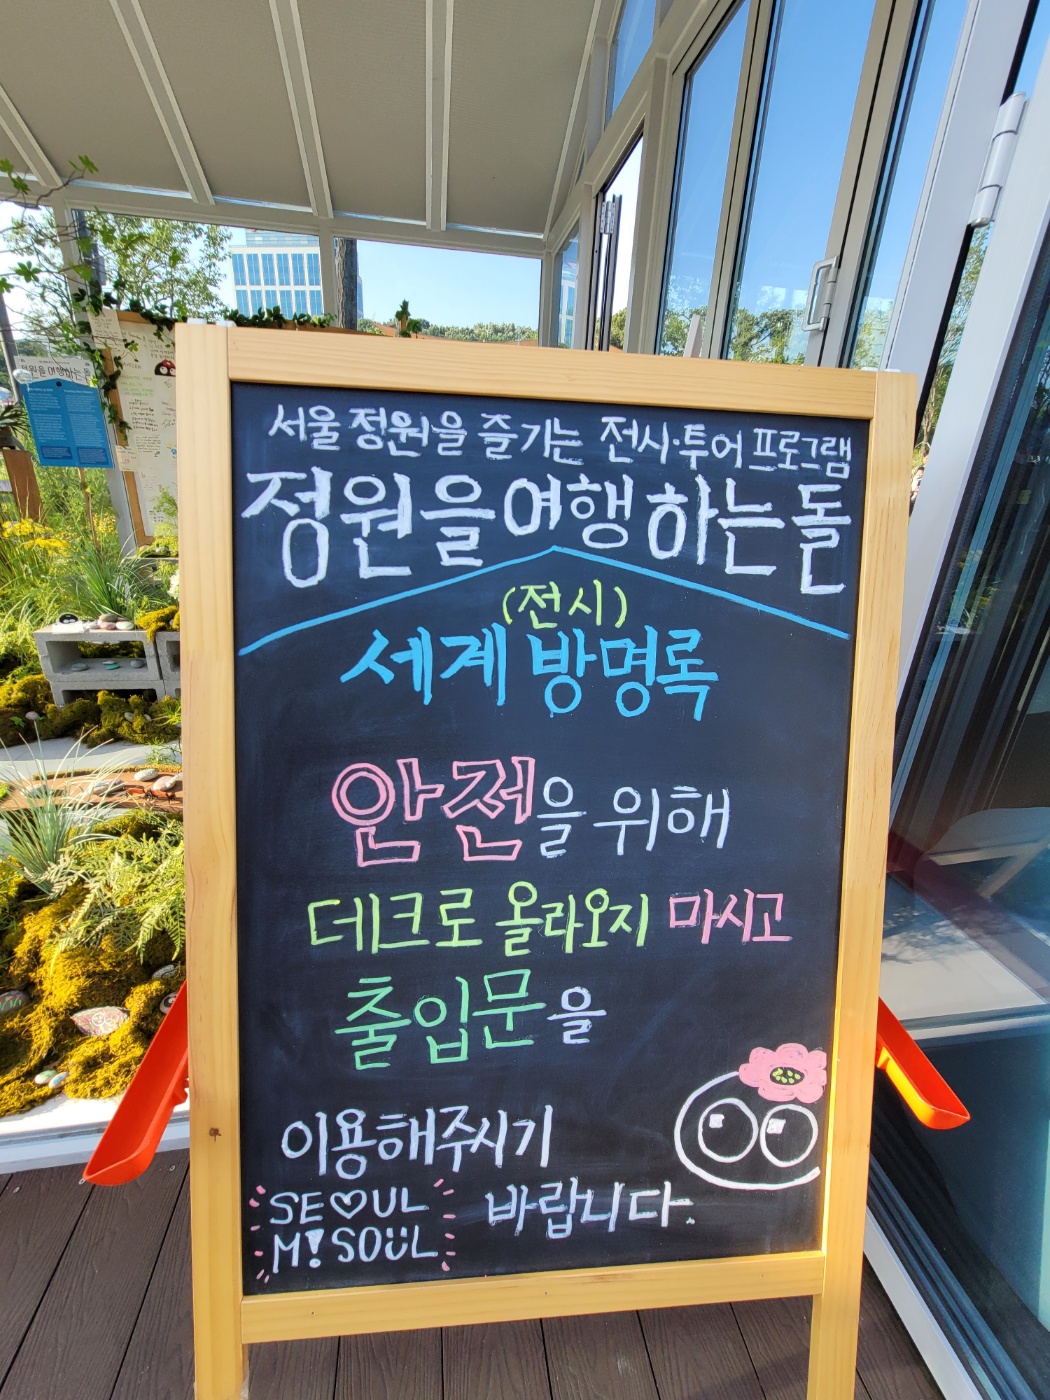 서울 정원을 즐기는 전시·투어 프로그램
정원을 여행하는 돌
(전시)
세계 방명록
안전을 위해
데크로 올라오지 마시고
출입문을
이용해주시기
바랍니다.
SE♡UL
M!SOUL
정원을 여행하는 돌